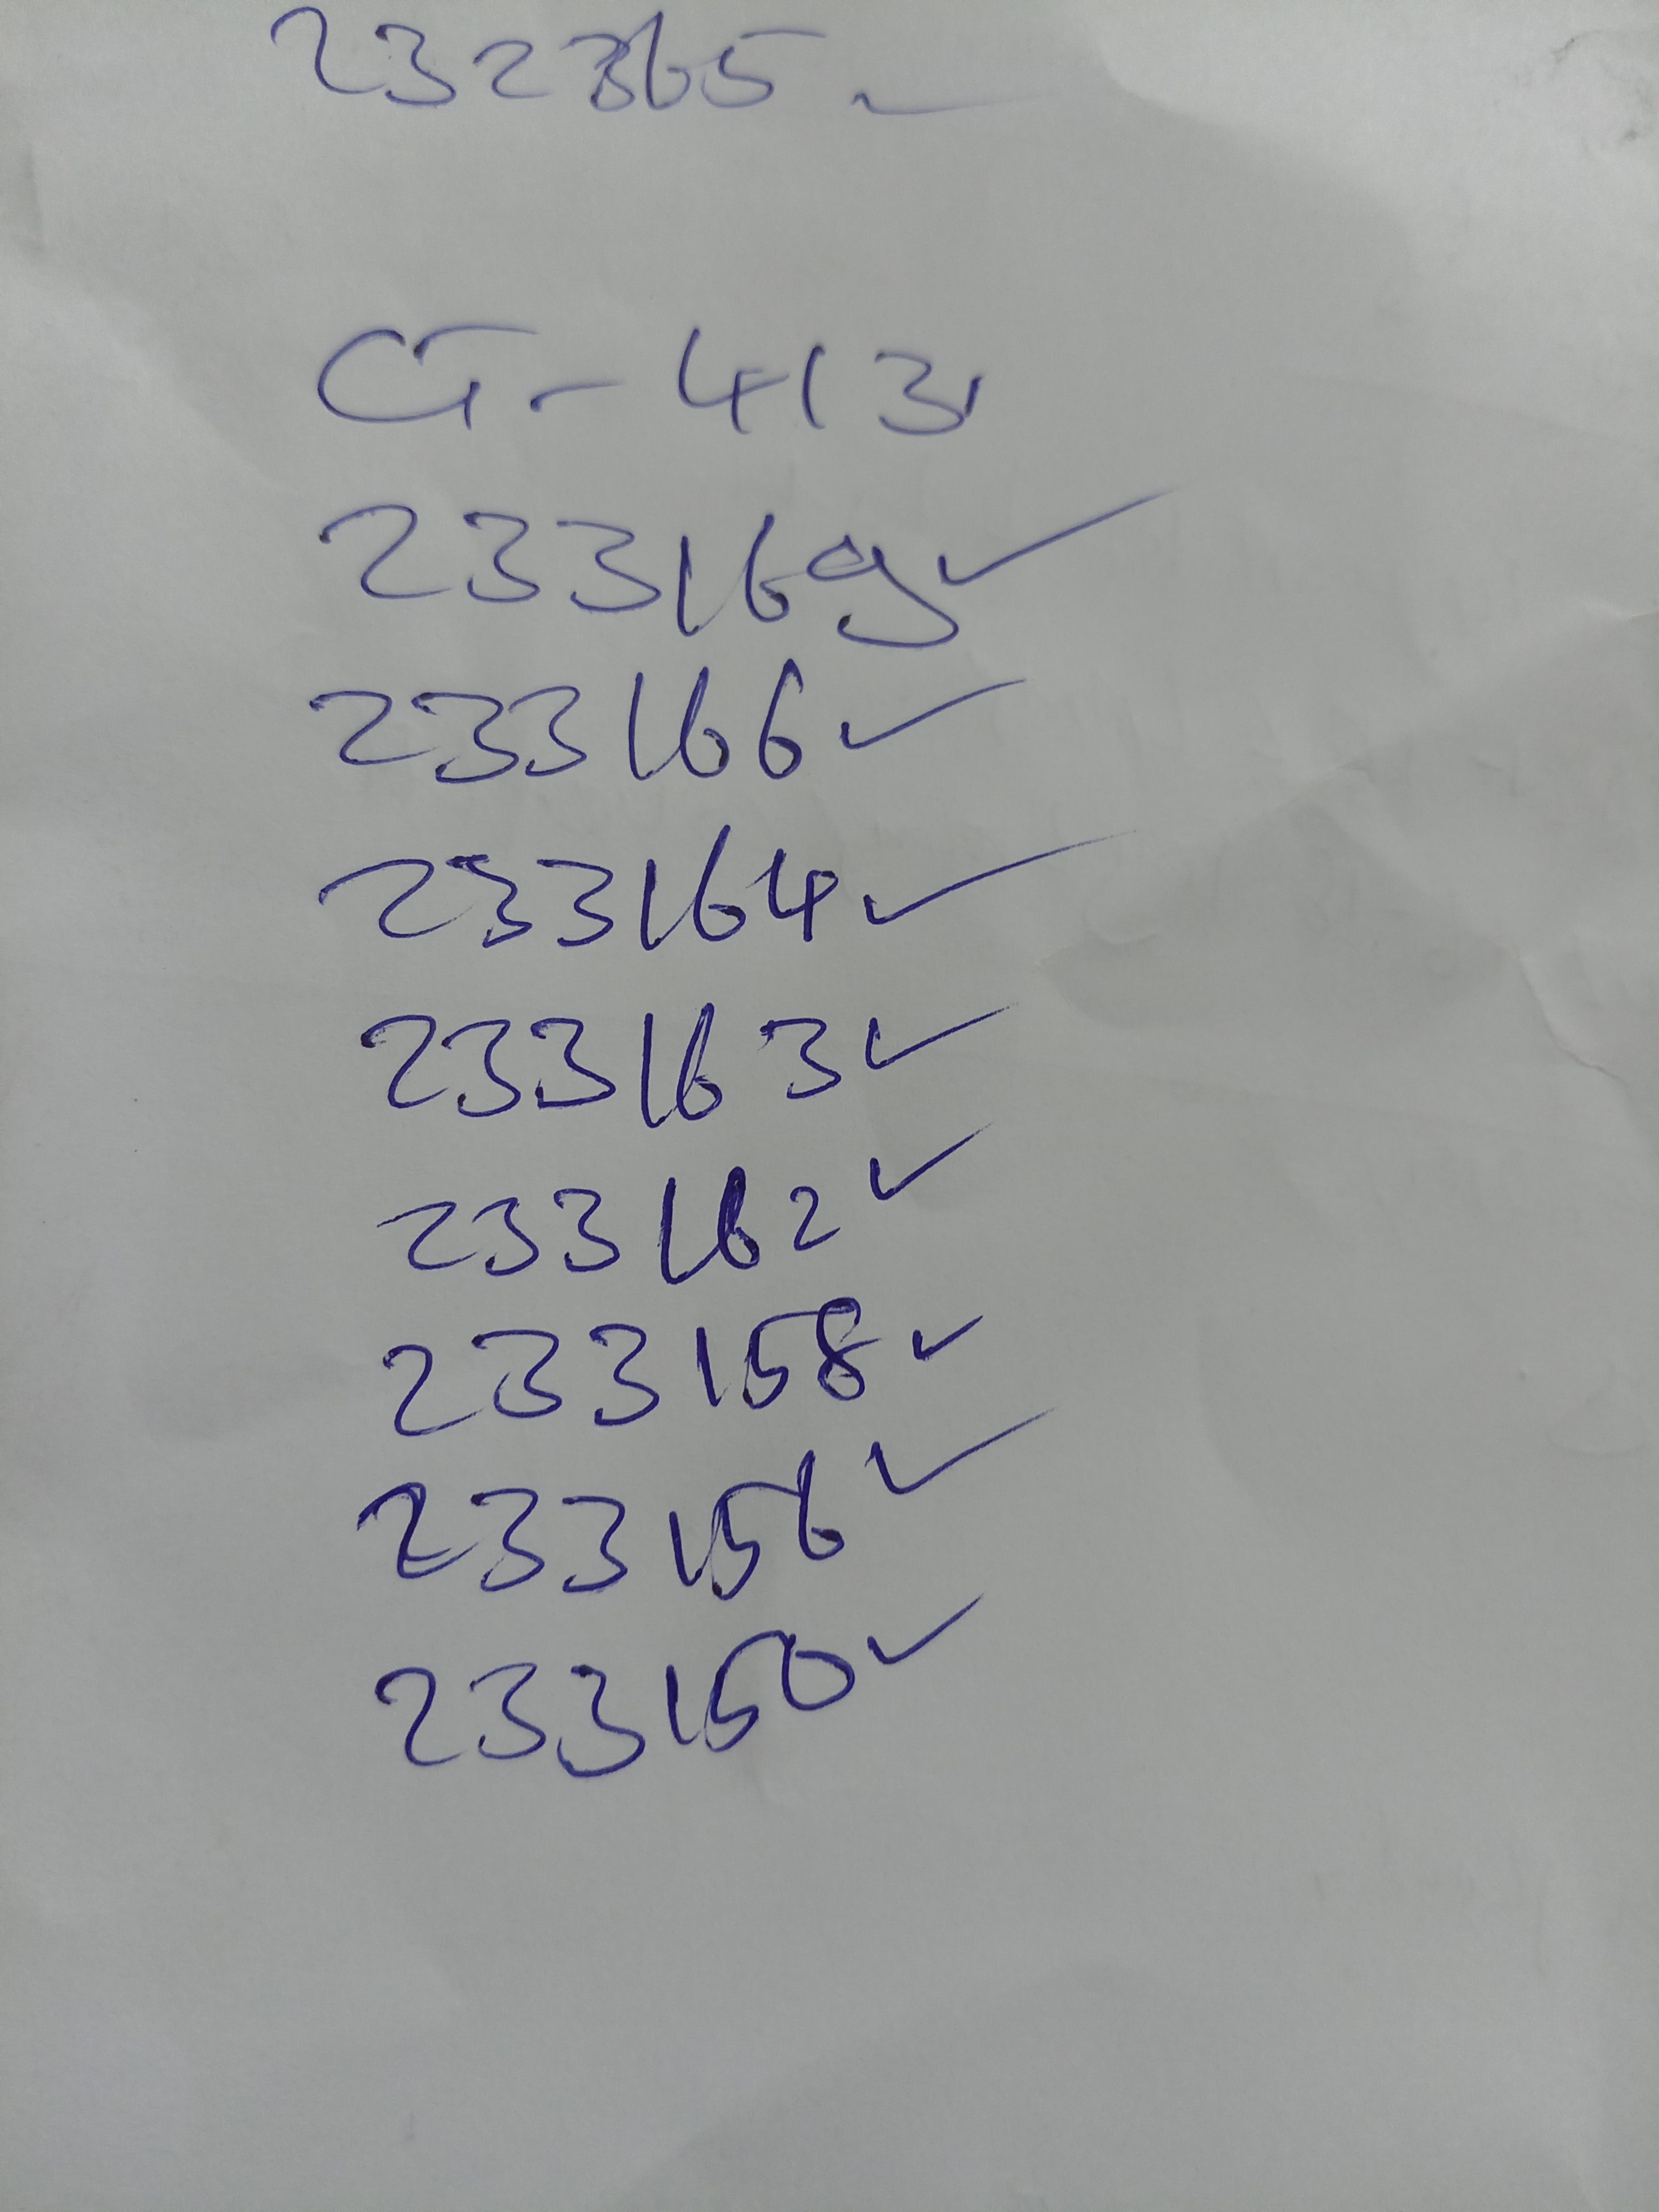 232365 ✓
G-413
233169 ✓
233166 ✓
233164 ✓
233163 ✓
233162 ✓
233158 ✓
233156 ✓
233150 ✓